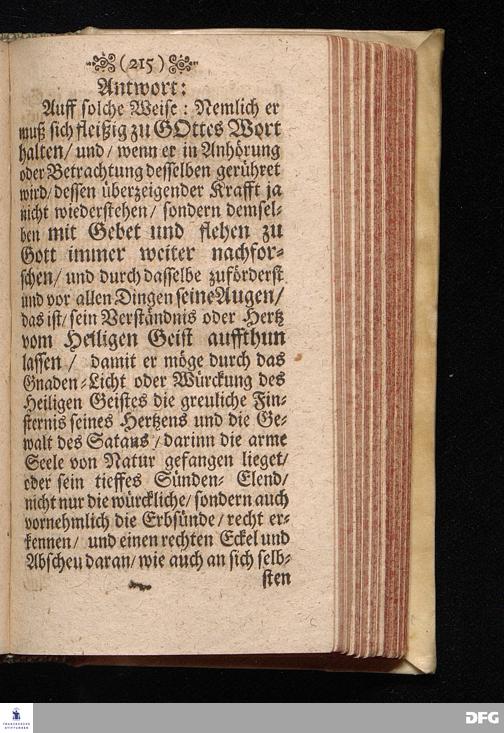 (215)
Antwort:
Auff solche Weise: Nemlich er
muß sich fleißig zu GOttes Wort
halten/ und/ wenn er in Anhörung
oder Betrachtung desselben gerühret
wird/ dessen überzeigender Krafft ja
nicht wiederstehen/ sondern demsel-
ben mit Gebet und flehen zu
Gott immer weiter nachfor-
schen/ und durch dasselbe zuförderst
und vor allen Dingen seine Augen/
das ist/ sein Verständnis oder Hertz
vom Heiligen Geist auffthun
lassen/ damit er möge durch das
Gnaden-Licht oder Würckung des
Heiligen Geistes die greuliche Fin-
sternis seines Hertzens und die Ge-
walt des Satans/ darinn die arme
Seele von Natur gefangen lieget/
oder sein tieffes Sünden-Elend/
nicht nur die würckliche/ sondern auch
vornehmlich die Erbsünde/ recht er-
kennen/ und einen rechten Eckel und
Abscheu daran/ wie auch an sich selb-
sten
FRANCKESCHE
STIFTUNGEN
DFG